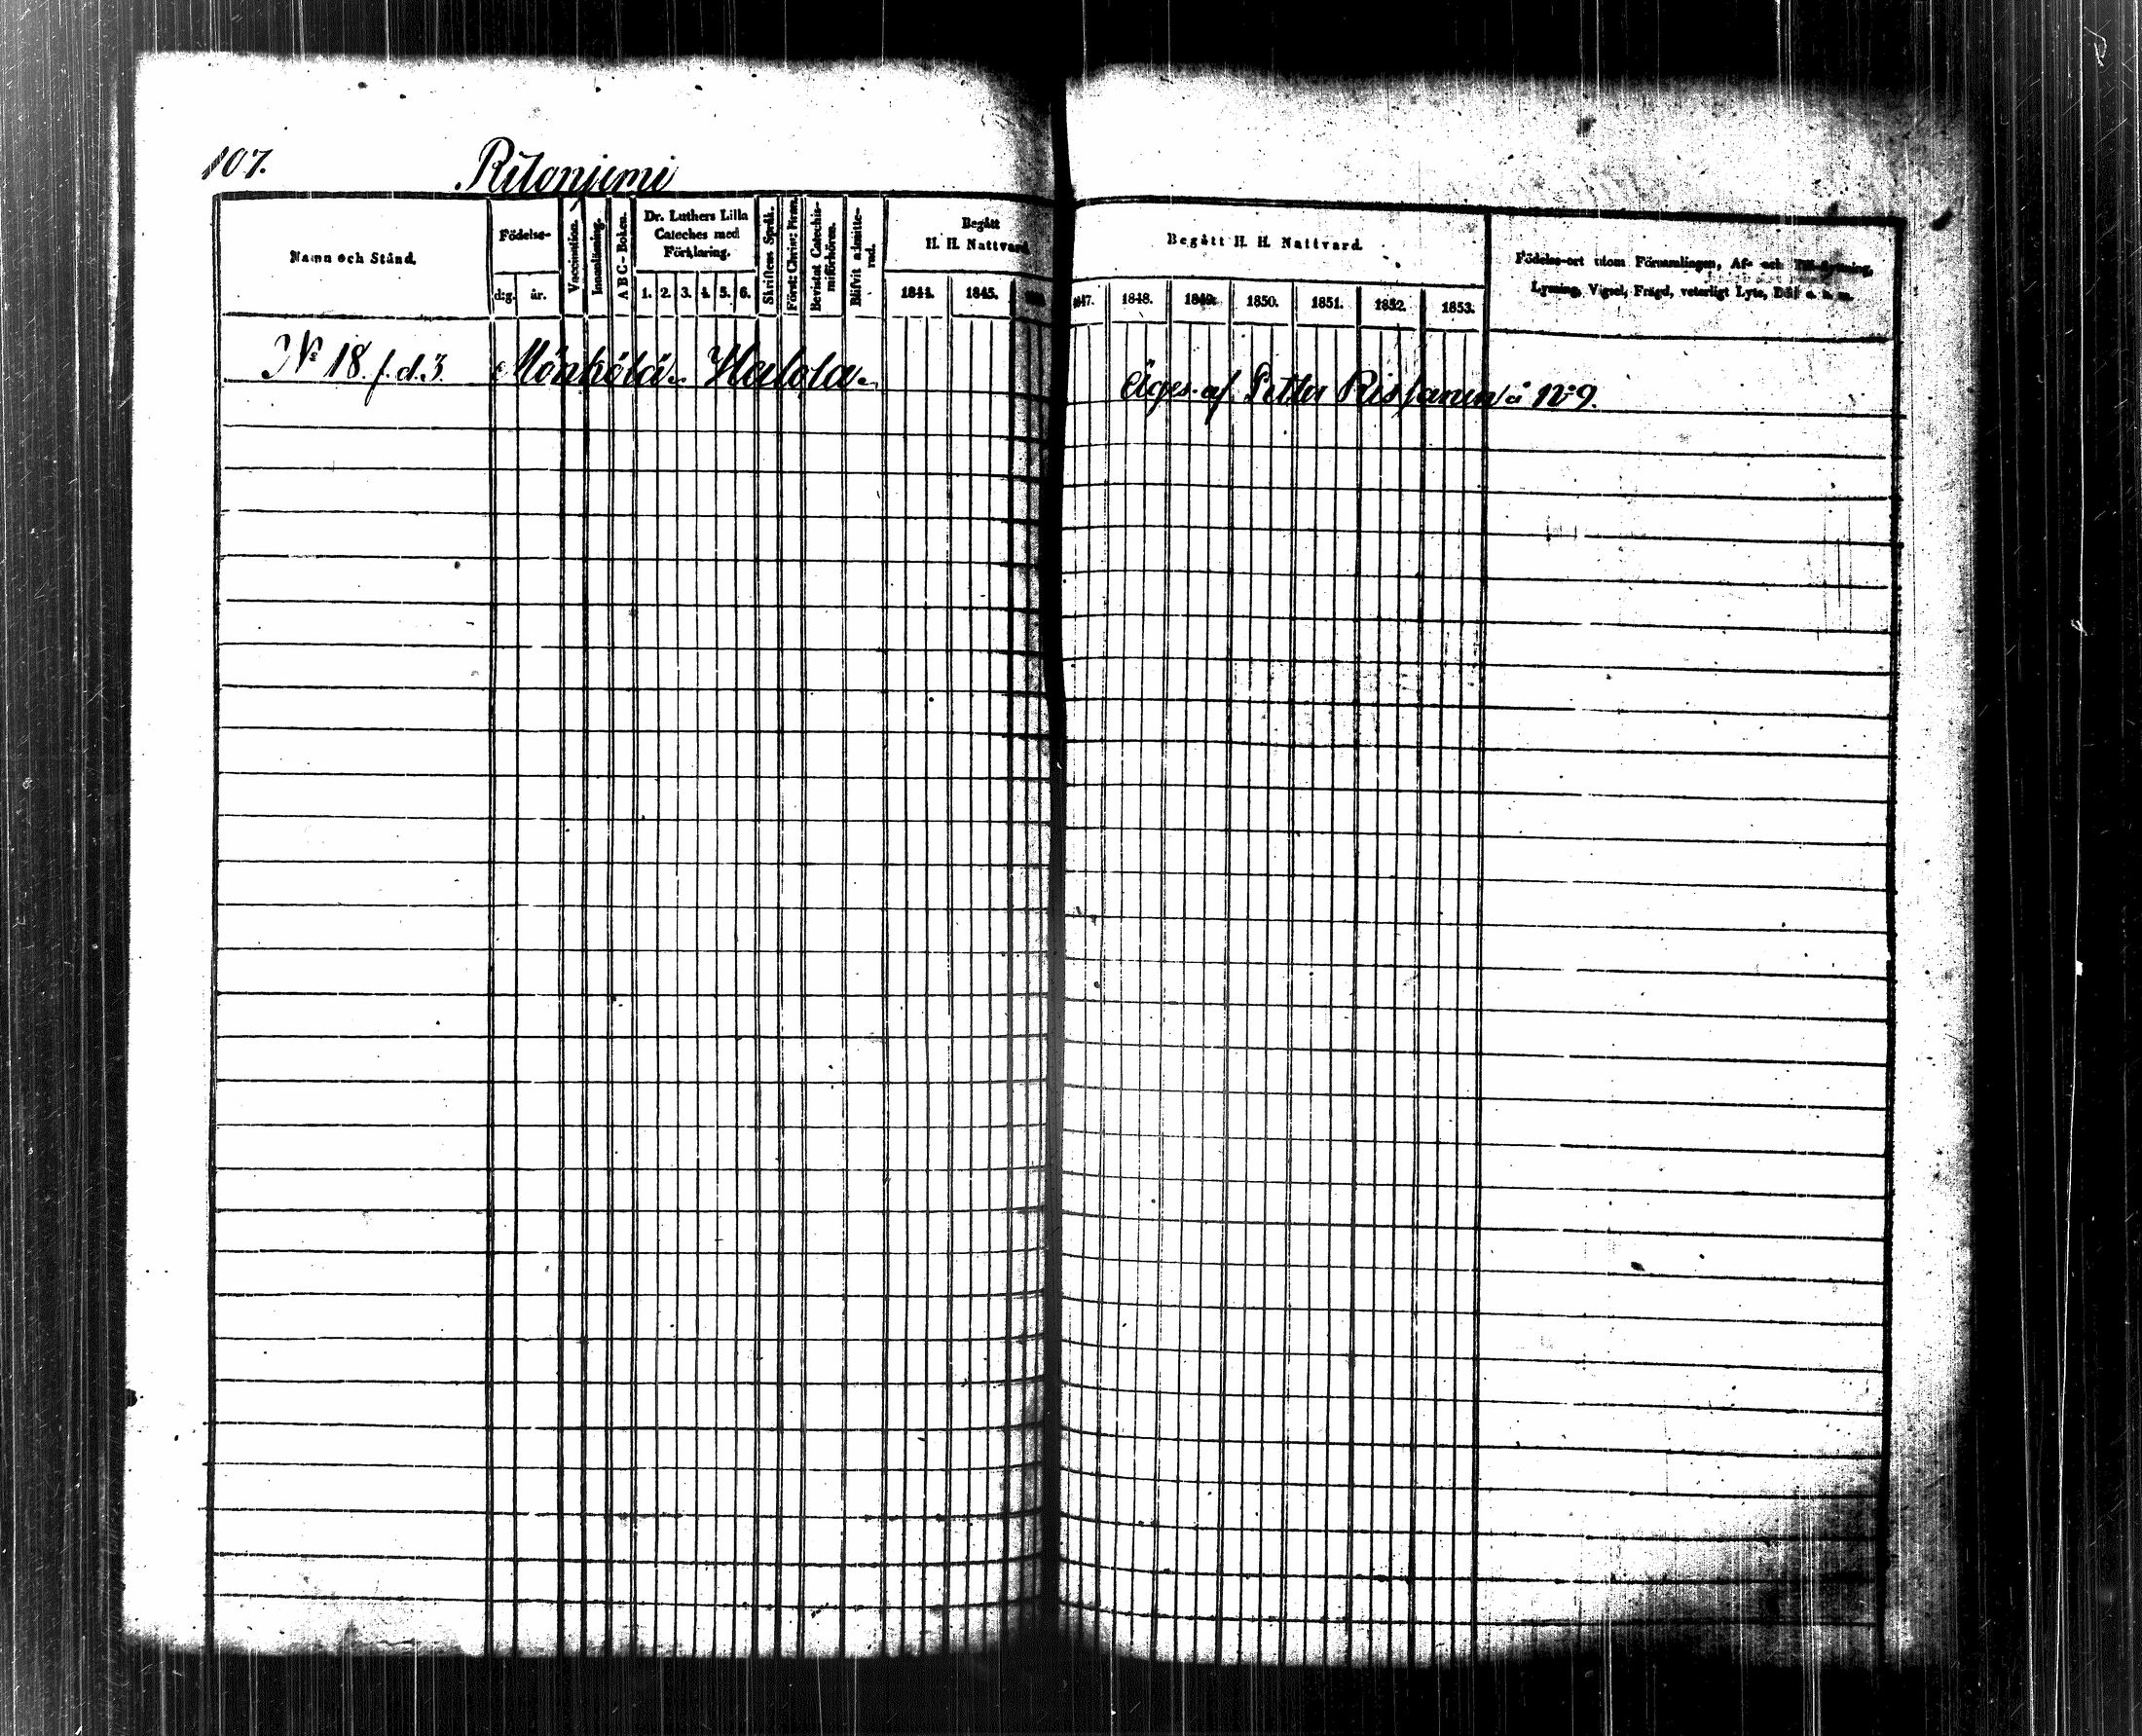 107.
Ritoniemi
Namn och Stånd.
Födelse-
d:g. år.
Vaccination.
Innanläsning.
A B C-Boken.
Dr. Luthers Lilla
Cateches med
Förklaring.
1. 2. 3. 4. 5. 6.
Skriftens Språk.
Först: Christ: Förm.
Bevistat Catechis-
miförhören.
Blifvit admitte-
rad.
Begått
H. H. Nattvard
1844. 1845.
Begått H. H. Nattvard.
1848. 1849. 1850. 1851. 1852. 1853.
Födelse-ort utom Församlingen, Af- och Till-flyttning,
Lysning, Vigsel, Frägd, veterligt Lyte, Död o. s. m.
№ 18. f. d. 3. Mönkölä. Halola.
Äges af Petter Rissanen å № 9.